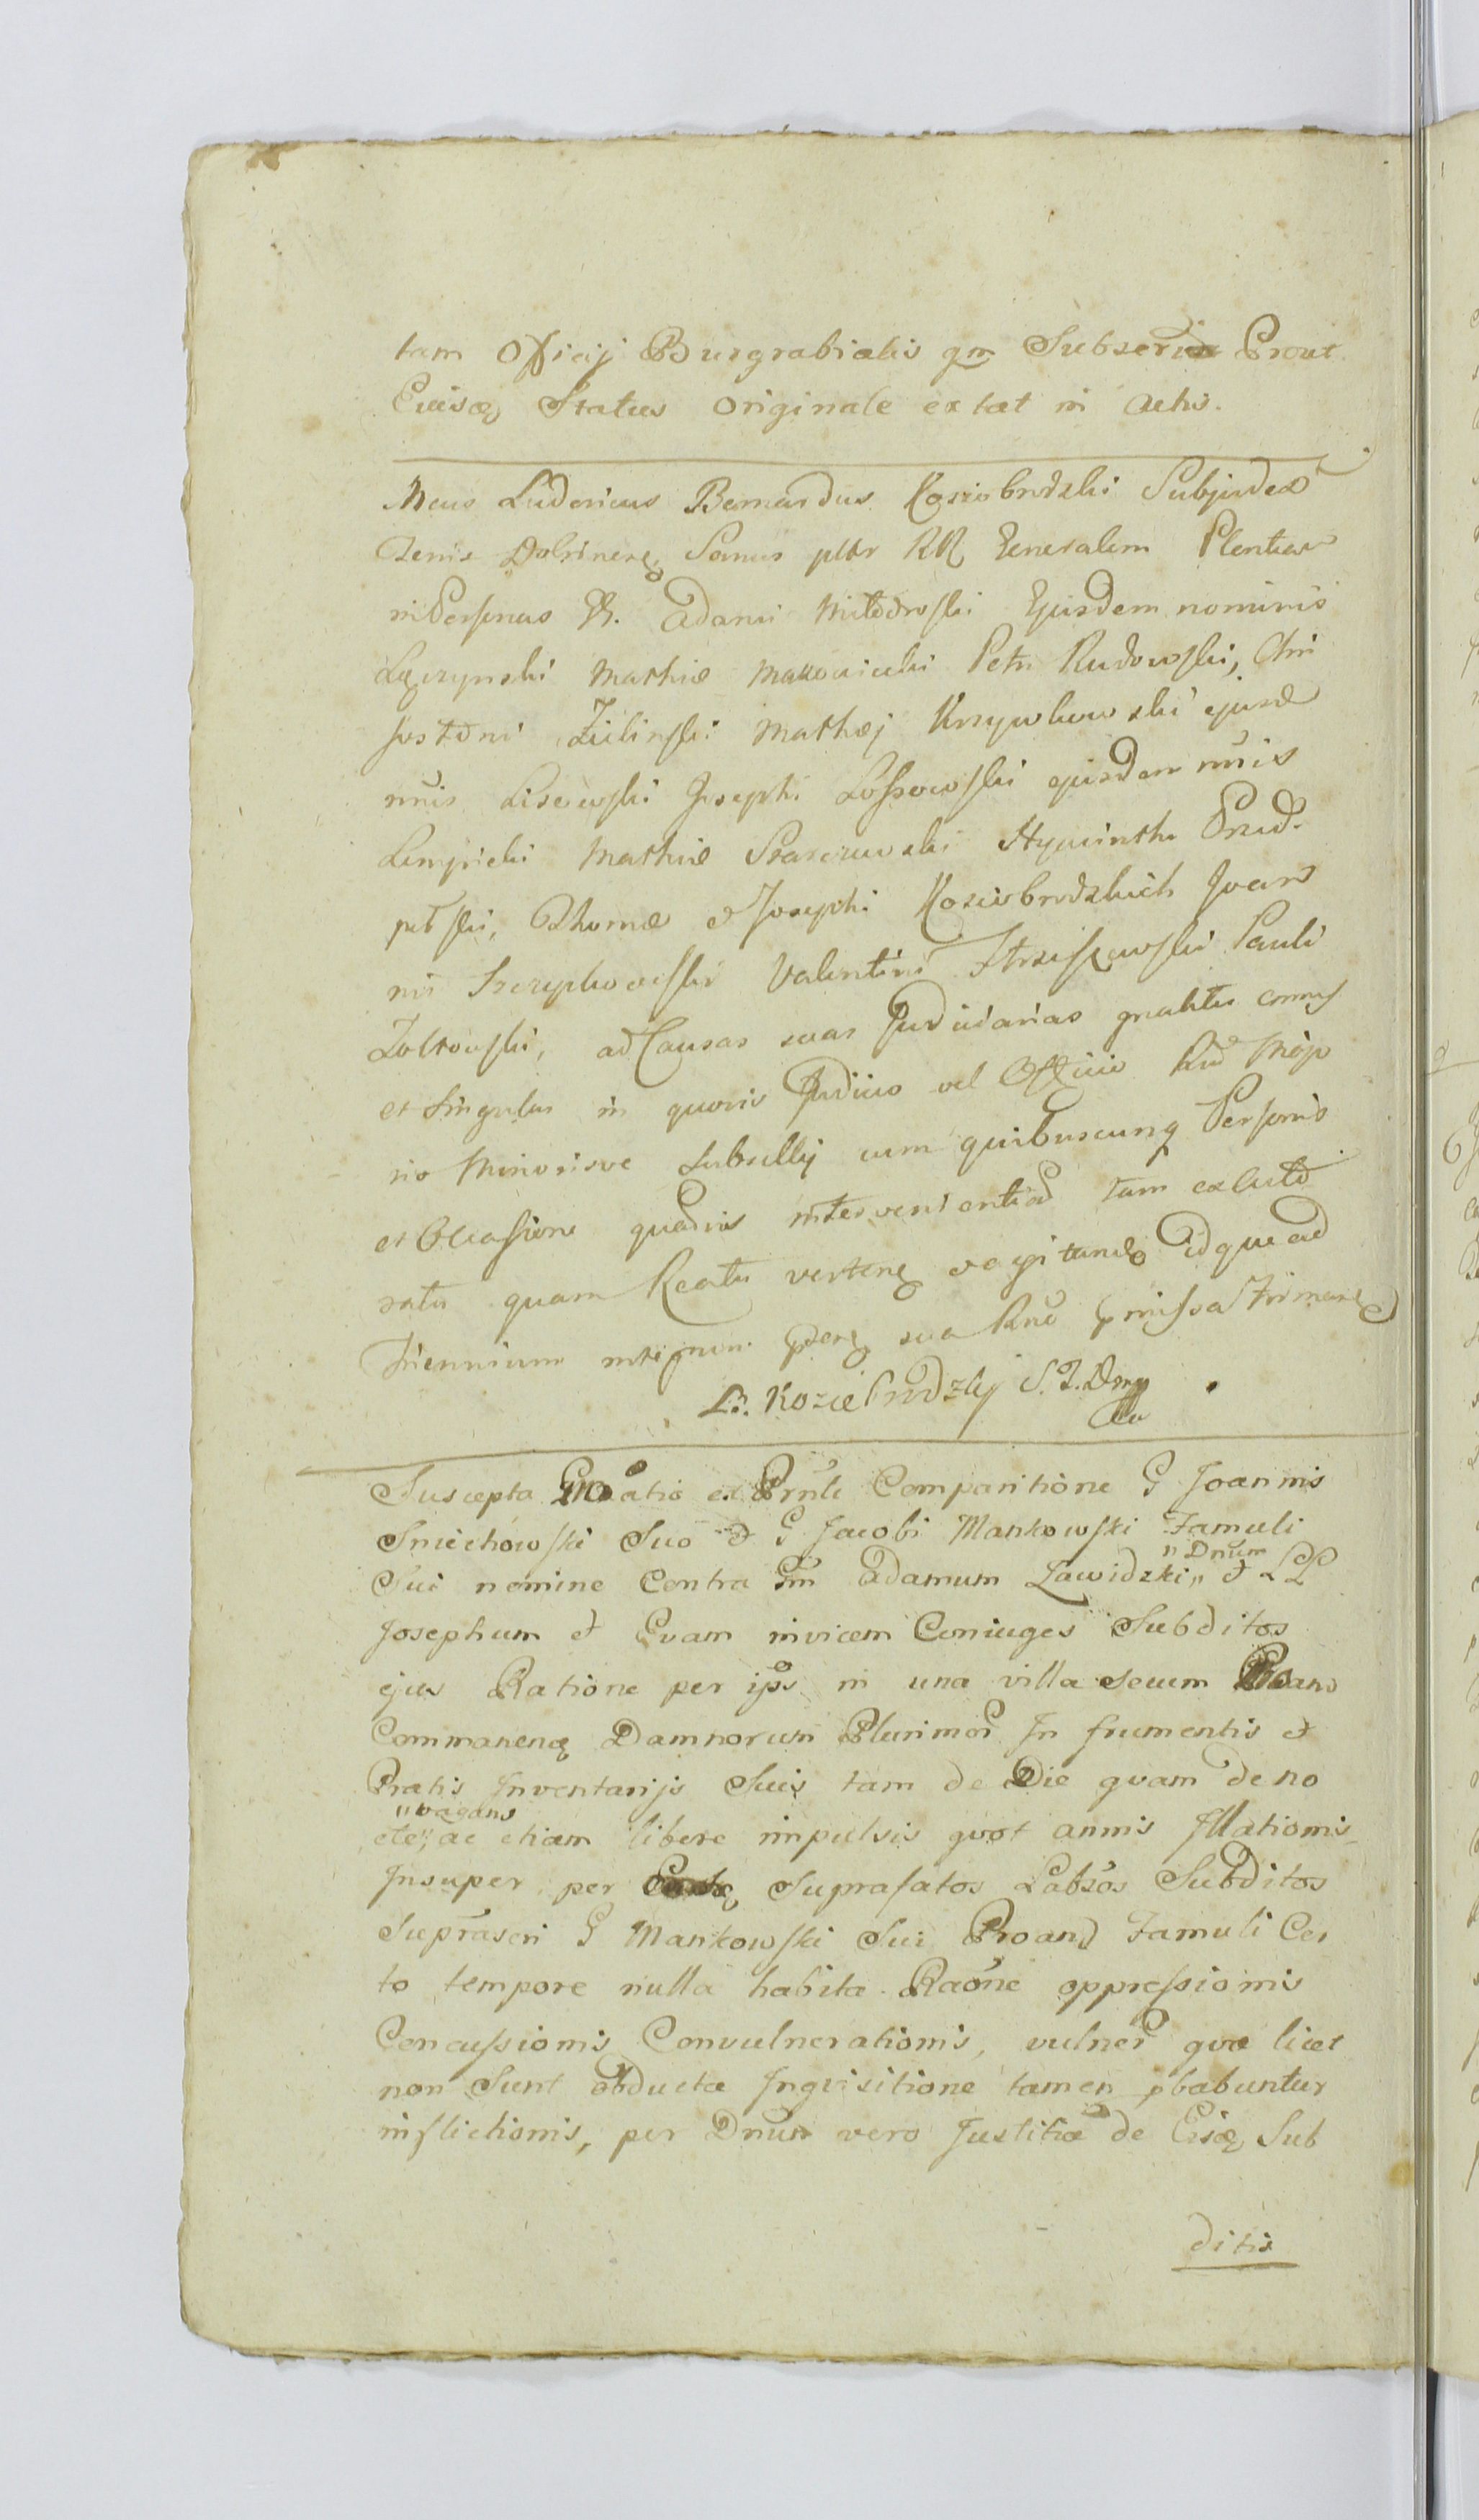 tam Officij Burgrabialis qm Subscrip Prout
Eiusq Status Originale extat in Actis.
Mcus Ludovicus Bernardus Koziebrodzki Subjudex
Terris Dobrinen Sanus pltr RR Generalem Plentiar
in Personas G. Adami Miłodrowski Ejusdem nominis
Łęczynski Mathiæ Makowiecki Petri Rudowski, Chri
sostomi Zielinski Mathæj Krzywkowski ejusd
nnis Lisewski Josephi Lossowski ejusdem nnis
Lempicki Mathiæ Szarczewski Hyacinthi Przed
pełski, Thomæ et Josephi Koziebrodzkich Joan
nis Szczypkowski Valentini Trziszewski Pauli
Zołtowski, ad Causas suas Judiciarias gnaliter omnes
et Singulas in quovis Judicio vel Officio Rd Majo
ris Minorisve Subsellij cum quibuscunq Personis
et Occasione quavis intervenientia tam ex Acto
ratu quam Reatu verten et agitand Idque ad
Triennium integrum pseng sua Rne pmissa Firmaneq
L.B. Koziebrodzky S.Z.Dmp
Suscepta Ptõatio ex Prnti Comparitione G Joannis
Smiechowski Suo et G Jacobi Mankowski Famuli
Sui nomine Contra Gm Adamum Zawidzki „ et LL
„Dnum
Josephum et Evam invicem Coniuges Subditos
ejus Ratione per ips in una villa secum Proand
Commanenq Damnorum Plurimor In frumentis et
Pratis Inventarijs Suis tam de Die quam de no
„vagans
cte„ ac etiam libere impulsis quot annis Illationis
Insuper per Suprafatos Labsos Subditos
Suprascri G Mankowski Sui Proand Famuli Cer
to tempore nulla habita Raone oppressionis
Concussionis Convulnerationis, vulner quæ licet
non Sunt obductæ Inquisitione tamen pbabuntur
inflictionis, per Dnum vero Justitiæ de Eisq Sub
ditis